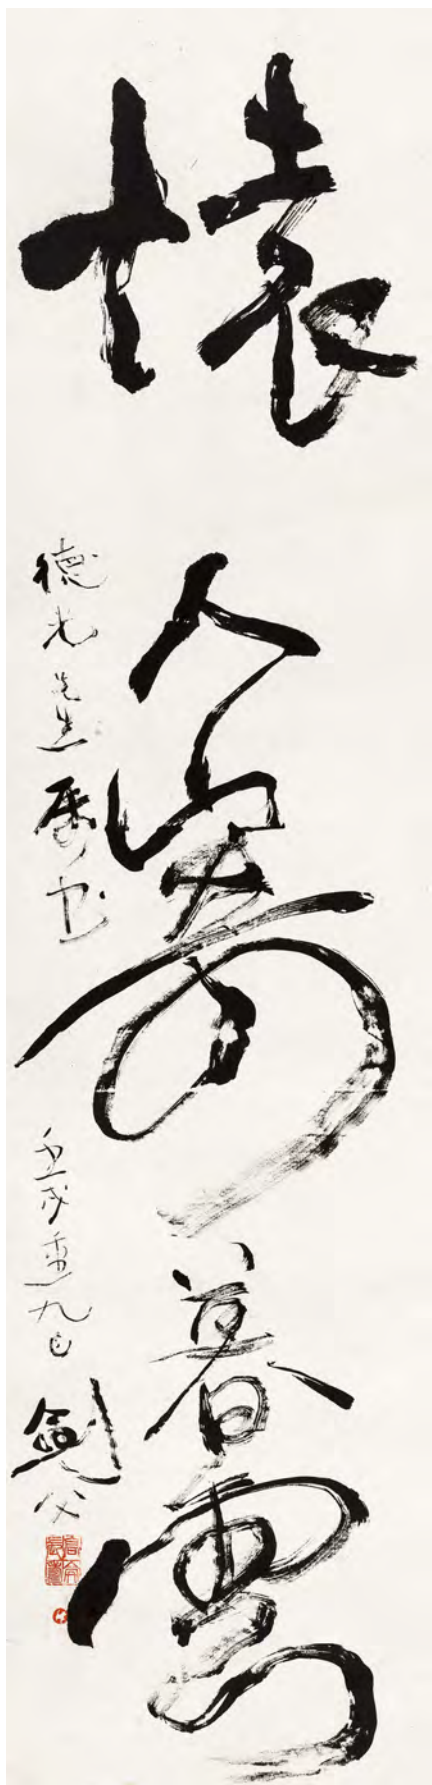 懷人寄暮雲
德光先生屬書
壬戌重九日 劍父